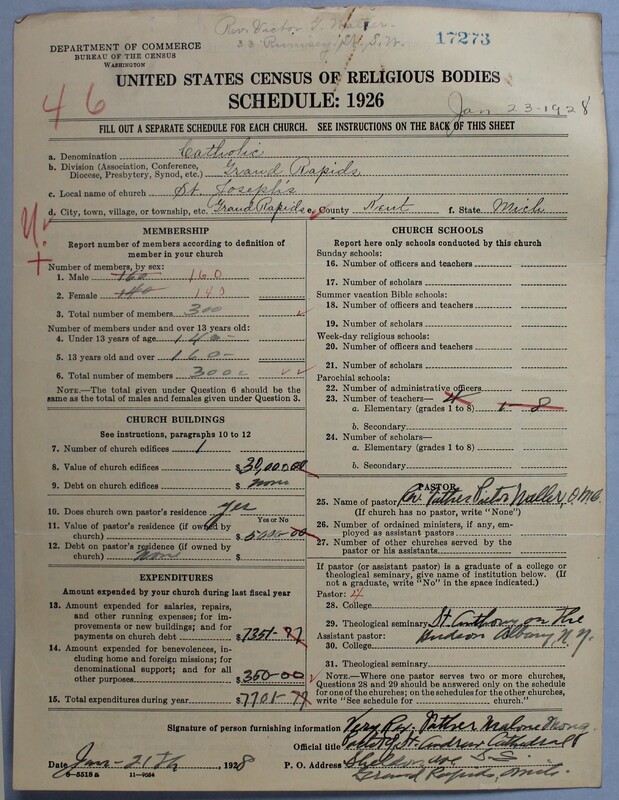 Rev. Victor
33 Rumsey St. S.W.
17273
DEPARTMENT OF COMMERCE
BUREAU OF THE CENSUS
WASHINGTON
UNITED STATES CENSUS OF RELIGIOUS BODIES
SCHEDULE: 1926
46
Jan 23-1928
FILL OUT A SEPARATE SCHEDULE FOR EACH CHURCH. SEE INSTRUCTIONS ON THE BACK OF THIS SHEET
a. Denomination Catholic
b. Division (Association, Conference,
Diocese, Presbytery, Synod, etc.) Grand Rapids
c. Local name of church St. Joseph's
d. City, town, village, or township, etc. Grand Rapids e. County Kent f. State Mich
MEMBERSHIP
Report number of members according to definition of
member in your church
Number of members, by sex:
1. Male 160 160
2. Female 140 140
3. Total number of members 300
Number of members under and over 13 years old:
4. Under 13 years of age 140
5. 13 years old and over 160
6. Total number of members 300
NOTE.—The total given under Question 6 should be
same as the total of males and females given under Question 3.
CHURCH BUILDINGS
See instructions, paragraphs 10 to 12
7. Number of church edifices 1
8. Value of church edifices $30,000.00
9. Debt on church edifices $ none
10. Does church own pastor's residence? yes
Yes or No
11. Value of pastor's residence (if owned by
church) $5000-00
12. Debt on pastor's residence (if owned by
church) none $
EXPENDITURES
Amount expended by your church during last fiscal year
13. Amount expended for salaries, repairs,
and other running expenses; for im-
provements or new buildings; and for
payments on church debt $7351-77
14. Amount expended for benevolences,
including home and foreign missions; for
denominational support; and for all
other purposes $350-00
15. Total expenditures during year $7701-77
CHURCH SCHOOLS
Report here only schools conducted by this church
Sunday schools:
16. Number of officers and teachers
17. Number of scholars
Summer vacation Bible schools:
18. Number of officers and teachers
19. Number of scholars
Week-day religious schools:
20. Number of officers and teachers
21. Number of scholars
Parochial schools:
22. Number of administrative officers
23. Number of teachers— 4
a. Elementary (grades 1 to 8) 1-8
b. Secondary
24. Number of scholars—
a. Elementary (grades 1 to 8)
b. Secondary
PASTOR
25. Name of pastor Rev. Father Victor
(If church has no pastor, write "None")
26. Number of ordained ministers, if any, em-
ployed as assistant pastors
27. Number of other churches served by the
pastor or his assistants
If pastor (or assistant pastor) is a graduate of a college or
theological seminary, give name of institution below. (If
not a graduate, write "No" in the space indicated.)
Pastor: 4
28. College
29. Theological seminary St. Anthony on the
Assistant pastor: Hudson Albany N.Y.
30. College
31. Theological seminary
NOTE.—Where one pastor serves two or more churches,
Questions 28 and 29 should be answered only on the schedule
for one of the churches; on the schedules for the other churches,
write "See schedule for church."
Signature of person furnishing information Very Rev. Father Malone
Official title St. Andrew Cathedral
Date Jan-21st, 1928 P. O. Address Sheldon Ave S.E.
6-5518 a 11-9564 Grand Rapids, Mich.